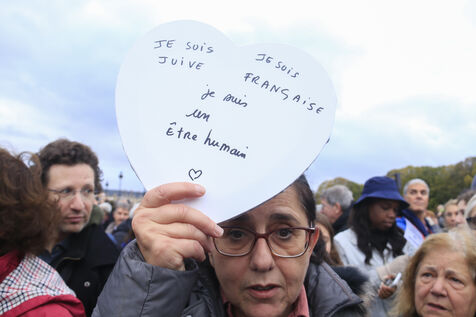 JE SUIS
JUIVE
JE SUIS
FRANÇAISE
je suis
un
être humain
♡